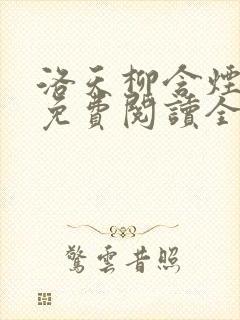 洛天柳含煙
免費閱讀全
驚雲昔照